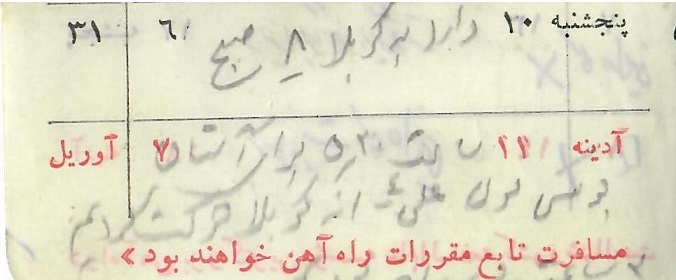 پنجشنبه ۱۰ دارا به کربلا ۸ صبح ۶ ۳۱
آدینه ۱۱ ساعت ۵٫۳۰ برای آستان ۷ آوریل
علی از کربلا حرکت کردیم
مسافرت تابع مقررات راه آهن خواهند بود »